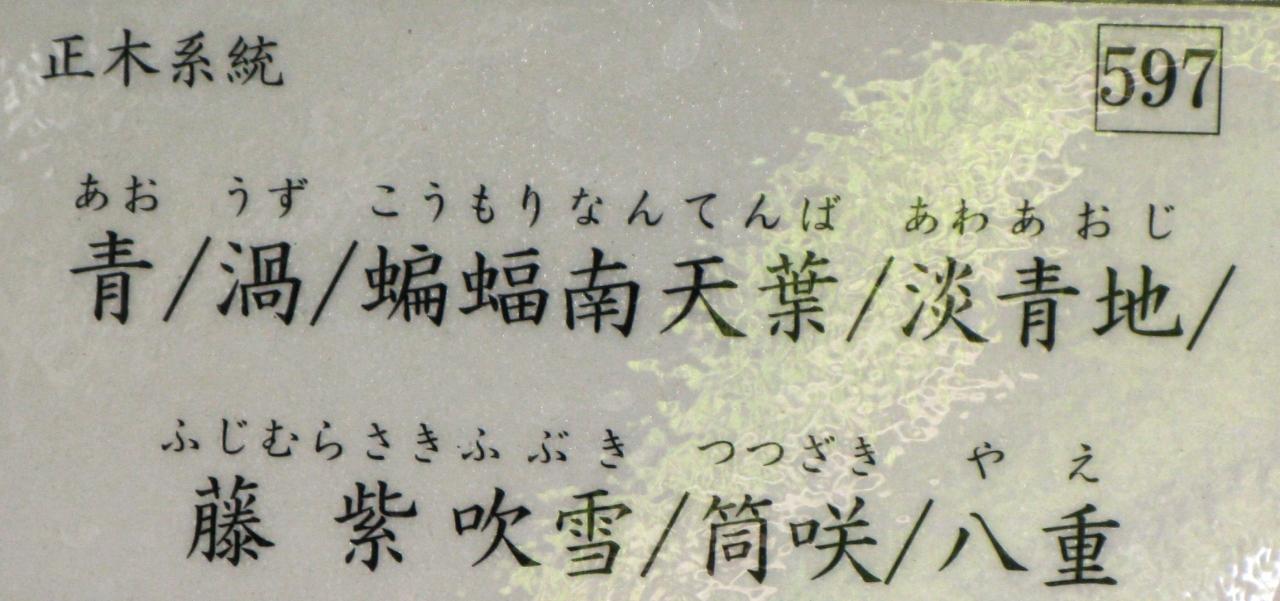 正木系統
597
あお うず こうもりなんてんば あわあおじ
青/渦/蝙蝠南天葉/淡青地/
ふじむらさきふぶき つつざき やえ
藤紫吹雪/筒咲/八重